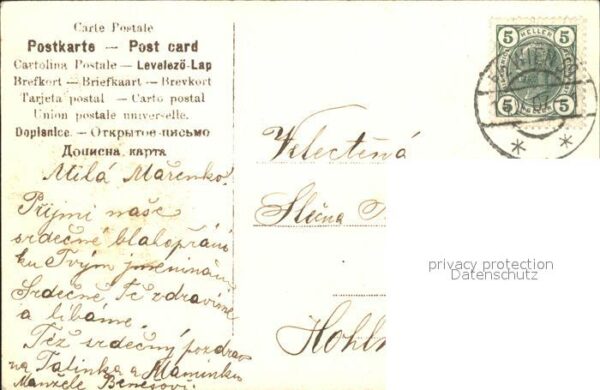 Carte Postale
Postkarte — Post card
Cartolina Postale — Levelező-Lap
Brefkort — Briefkaart — Brevkort
Tarjeta postal — Carto postal
Union postale universelle.
Dopisnice. — Открытое письмо
Дописна карта
Milá Mařenko.
Přijmi naše
srdečné blahopřání
ku Tvým jmeninám
Srdečně Tě zdravíme
a líbáme.
Též srdečný pozdrav
na Tatínka a Maminku
Manželé Benešovi
5 HELLER 5
5 5
WIEN
Velectěná
Slečna
Hohl
privacy protection
Datenschutz